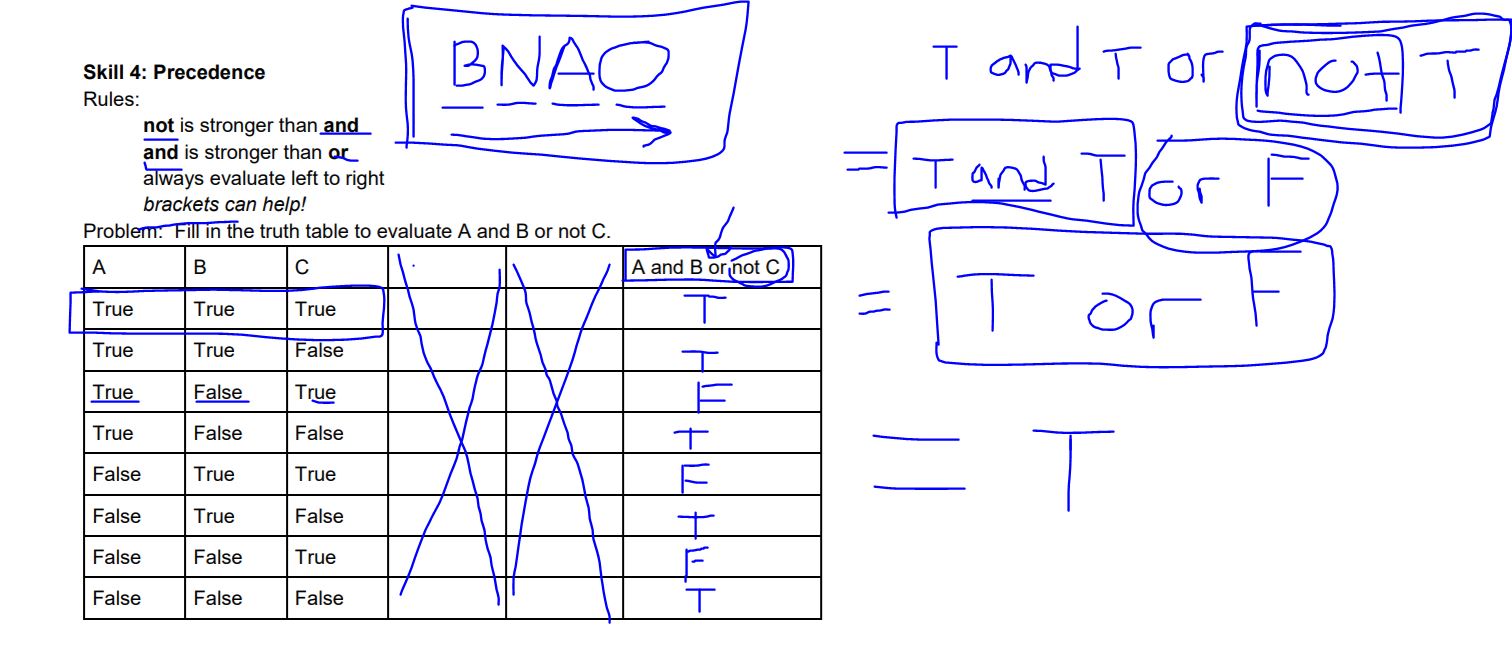 BNAO
Skill 4: Precedence
Rules:
not is stronger than and
and is stronger than or
always evaluate left to right
brackets can help!
Problem: Fill in the truth table to evaluate A and B or not C.
A B C A and B or not C
True True True T
True True False T
True False True F
True False False T
False True True F
False True False T
False False True F
False False False T
T and T or not T
= T and T or F
= T or F
= T